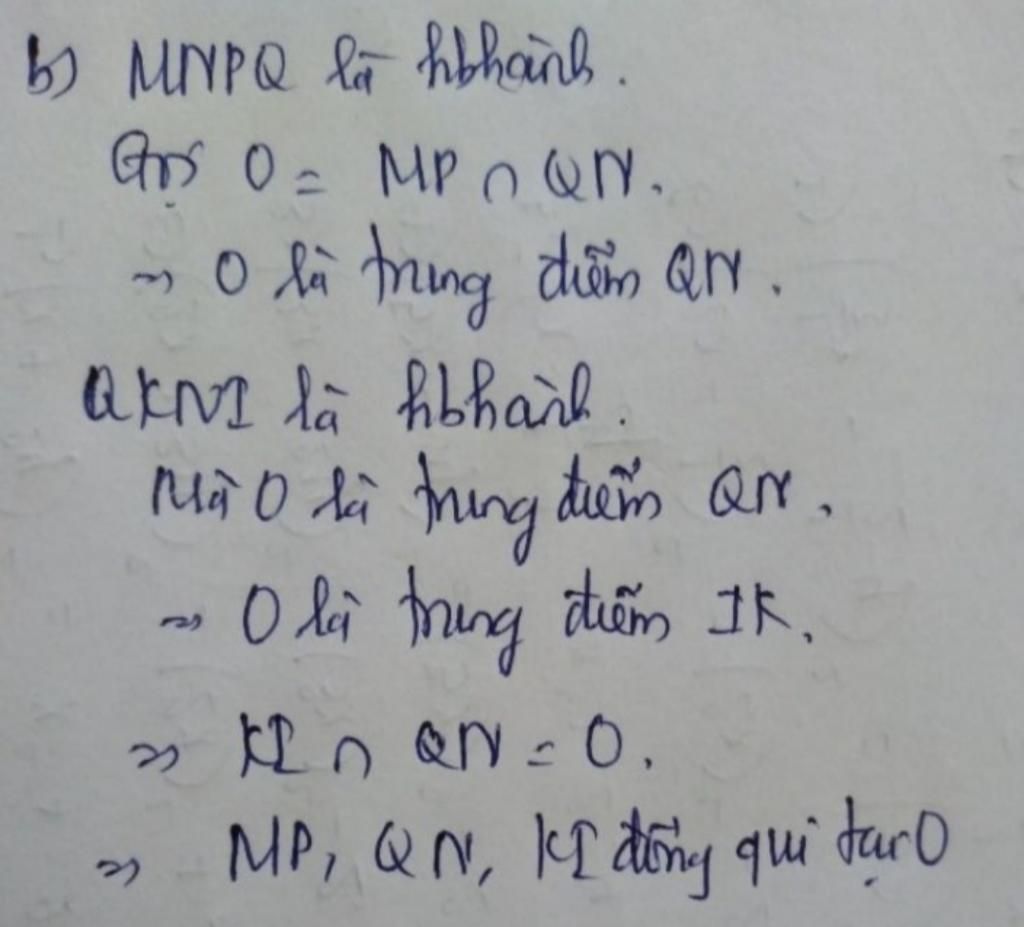 b) MNPQ là hbhành.
Gọi O = MP ∩ QN.
⇒ O là trung điểm QN.
QKNI là hbhành.
Mà O là trung điểm QN.
⇒ O là trung điểm IK.
⇒ KI ∩ QN = O.
⇒ MP, QN, KI đồng qui tại O